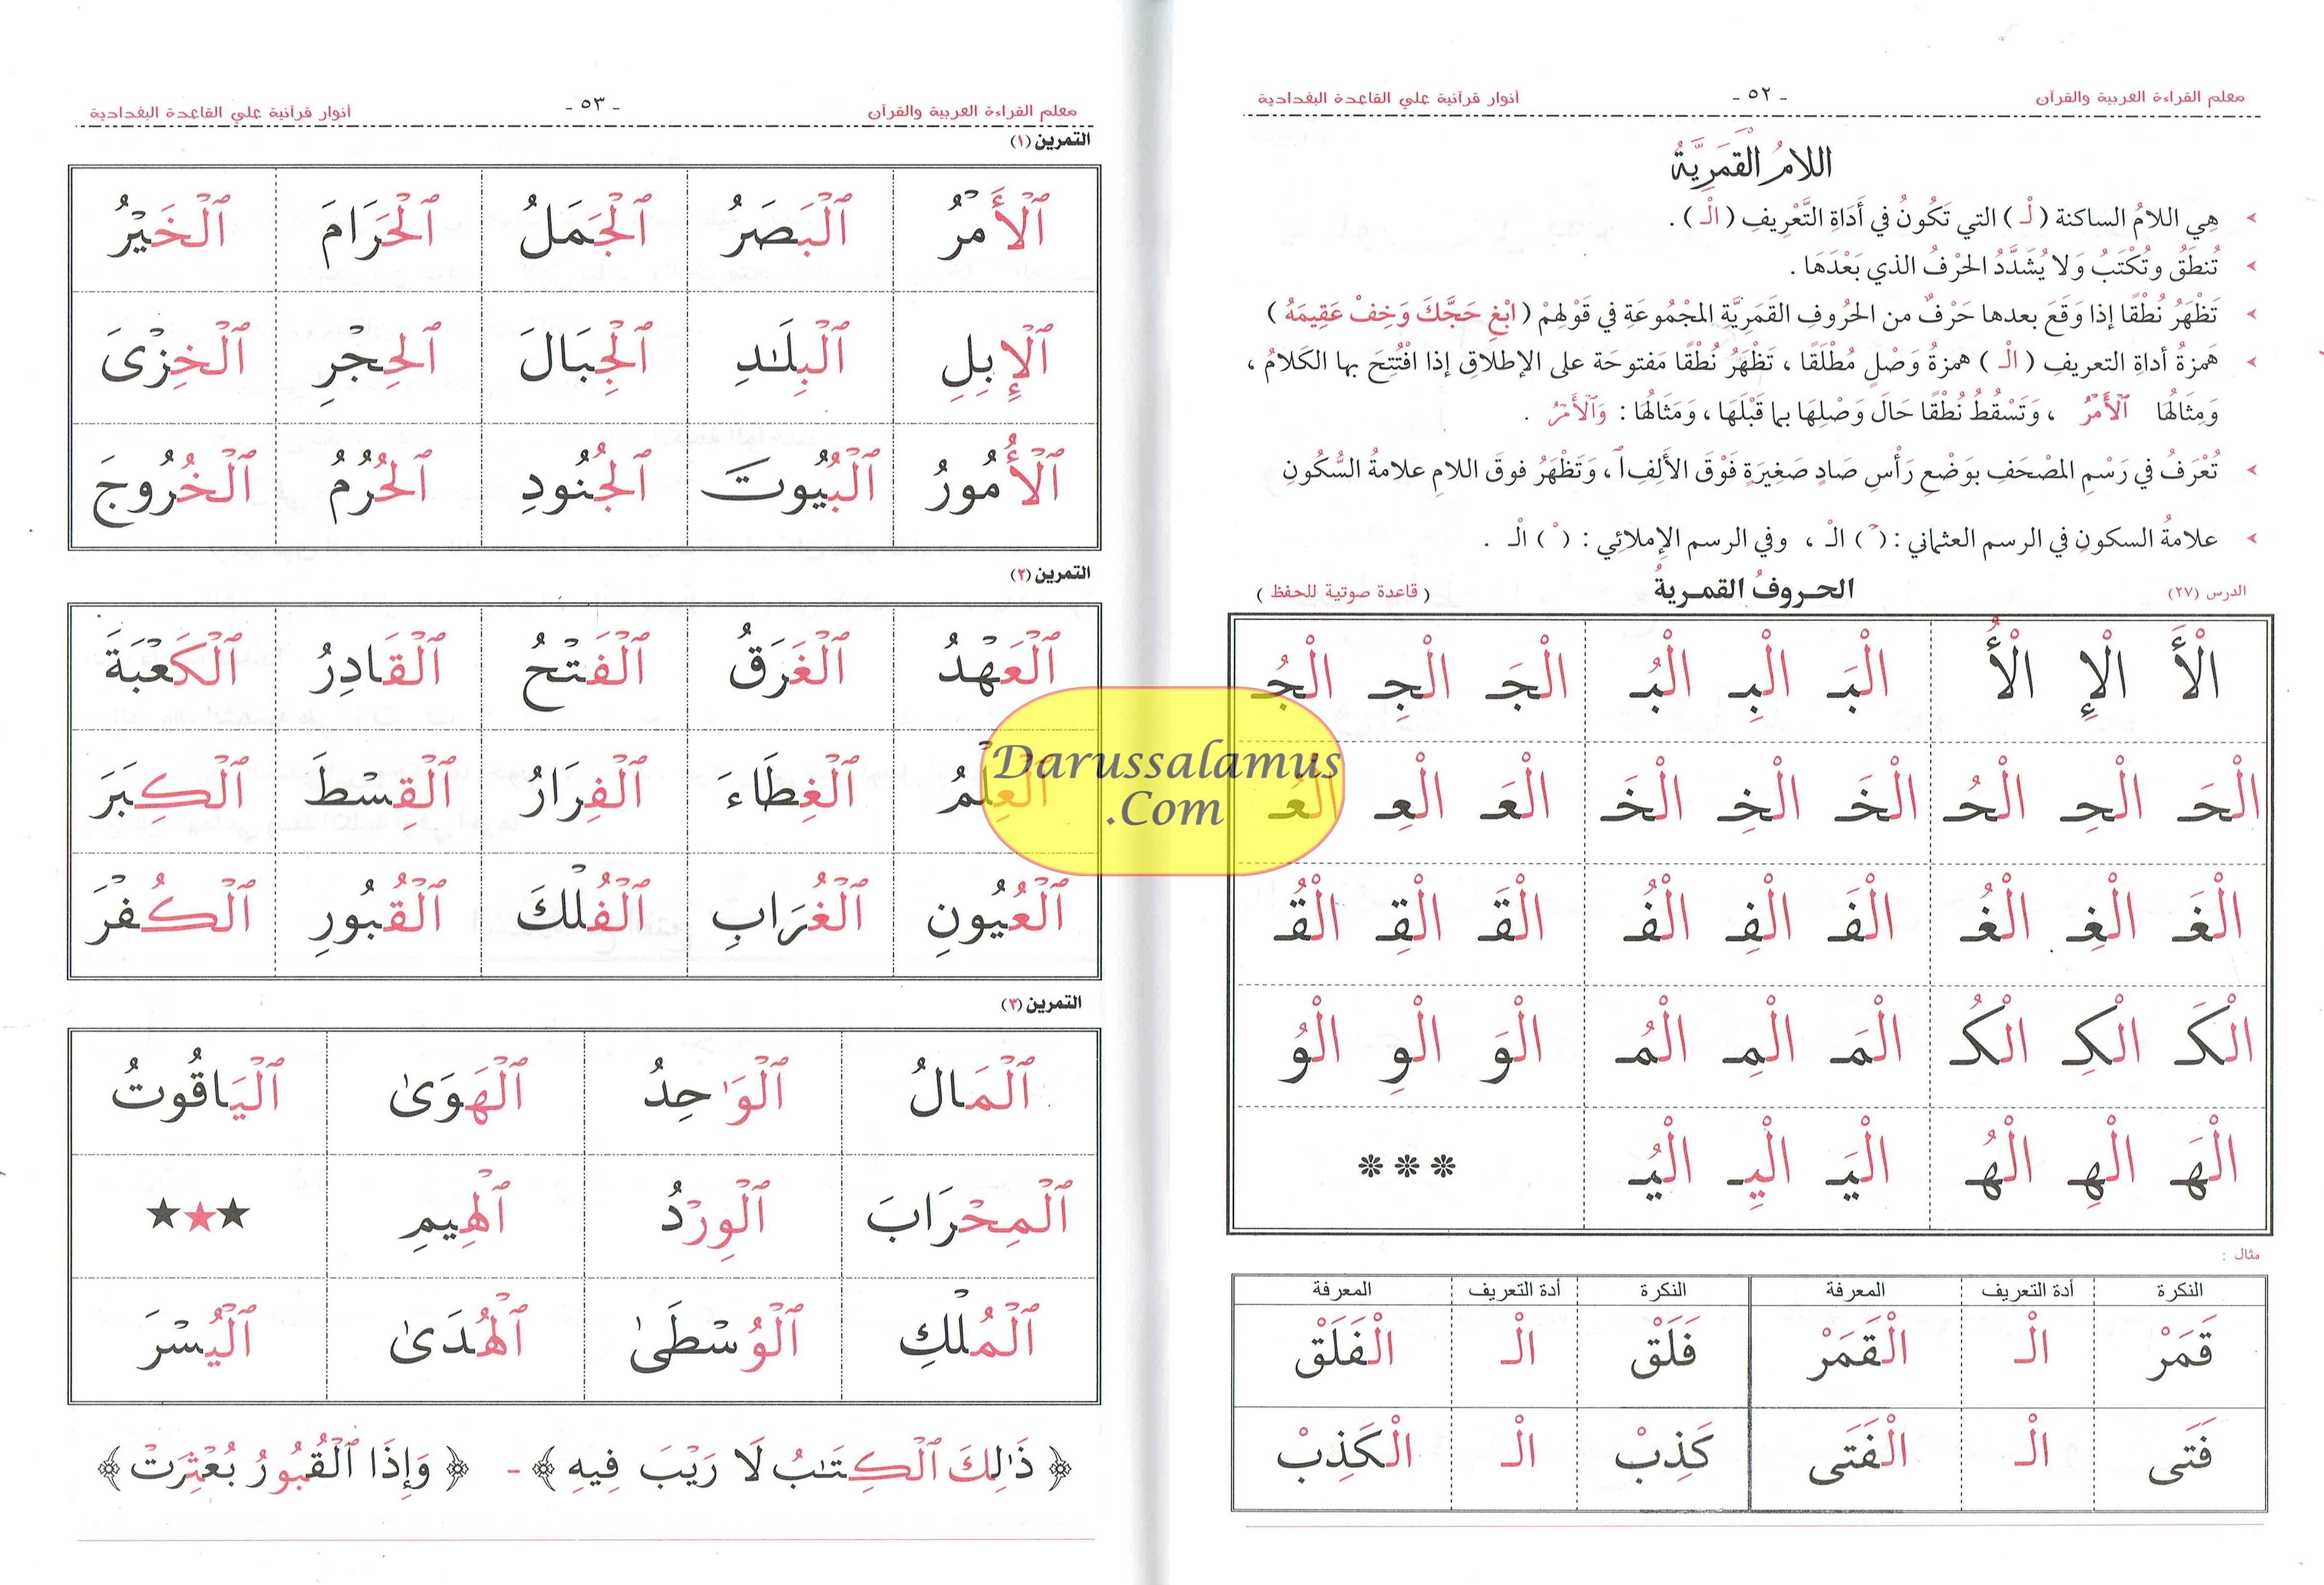 معلم القراءة العربية والقرآن - ٥٢ - أنوار قرآنية علي القاعدة البغدادية
اللامُ القَمَرِيَّةُ
هِي اللامُ الساكنة ( لْـ ) التي تَكُونُ في أَدَاةِ التَّعْرِيفِ ( الْـ ) .
تُنطَقُ وتُكْتَبُ وَلا يُشَدَّدُ الحَرْفُ الذي بَعْدَهَا .
تَظْهَرُ نُطْقًا إذا وَقَعَ بعدها حَرْفٌ من الحرُوفِ القَمَرِيَّةِ المجْمُوعَةِ في قَوْلِهِمْ ( ابْغِ حَجَّكَ وَخِفْ عَقِيمَهُ )
هَمزةُ أداةِ التعريفِ ( الْـ ) همزةُ وَصْلٍ مُطْلَقًا ، تَظْهَرُ نُطْقًا مَفتوحَة على الإطلاقِ إذا افْتُتِحَ بها الكَلامُ ،
وَمِثَالُهَا ٱلْأَمْرُ ، وَتَسْقُطُ نُطْقًا حَالَ وَصْلِهَا بما قَبْلَهَا ، وَمَثَالُهَا : وَٱلْأَمْرُ .
تُعْرَفُ في رَسْمِ المصْحَفِ بوَضْعِ رَأْسِ صَادٍ صَغِيرَةٍ فَوْقَ الأَلِفِ ٱ ، وَتَظْهَرُ فوقَ اللامِ علامةُ السُّكُونِ
علامةُ السكونِ في الرسم العثماني : ( ۡ ) الـ ، وفي الرسم الإملائي : ( ْ ) الْـ .
الدرس (٢٧) الحروفُ القمريةُ ( قاعدة صوتية للحفظ )
الْأَ الْإِ الْأُ الْبَـ الْبِـ الْبُـ الْجَـ الْجِـ الْجُـ
الْحَـ الْحِـ الْحُـ الْخَـ الْخِـ الْخَـ الْعَـ الْعِـ الْعُـ
الْغَـ الْغِـ الْغُـ الْفَـ الْفِـ الْفُـ الْقَـ الْقِـ الْقُـ
الْكَـ الْكِـ الْكُـ الْمَـ الْمِـ الْمُـ الْوَ الْوِ الْوُ
الْهَـ الْهِـ الْهُـ الْيَـ الْيِـ الْيُـ
مثال :
النكرة أدة التعريف المعرفة النكرة أدة التعريف المعرفة
قَمَرْ الْـ الْقَمَرْ فَلَقْ الْـ الْفَلَقْ
فَتَى الْـ الْفَتَى كَذِبْ الْـ الْكَذِبْ
معلم القراءة العربية والقرآن - ٥٣ - أنوار قرآنية علي القاعدة البغدادية
التمرين (١)
ٱلْأَمْرُ ٱلْبَصَرُ ٱلْجَمَلُ ٱلْحَرَامَ ٱلْخَيْرُ
ٱلْإِبِلِ ٱلْبِلَٰدِ ٱلْجِبَالَ ٱلْحِجْرِ ٱلْخِزْىَ
ٱلْأُمُورُ ٱلْبُيُوتَ ٱلْجُنُودِ ٱلْحُرُمُ ٱلْخُرُوجَ
التمرين (٢)
ٱلْعَهْدُ ٱلْغَرَقُ ٱلْفَتْحُ ٱلْقَادِرُ ٱلْكَعْبَةَ
ٱلْعِلْمُ ٱلْغِطَاءَ ٱلْفِرَارُ ٱلْقِسْطَ ٱلْكِبَرَ
ٱلْعُيُونِ ٱلْغُرَابِ ٱلْفُلْكَ ٱلْقُبُورِ ٱلْكُفْرَ
التمرين (٣)
ٱلْمَالُ ٱلْوَٰحِدُ ٱلْهَوَىٰ ٱلْيَاقُوتُ
ٱلْمِحْرَابَ ٱلْوِرْدُ ٱلْهِيمِ ★★★
ٱلْمُلْكِ ٱلْوُسْطَىٰ ٱلْهُدَىٰ ٱلْيُسْرَ
﴿ ذَٰلِكَ ٱلْكِتَٰبُ لَا رَيْبَ فِيهِ ﴾ - ﴿ وَإِذَا ٱلْقُبُورُ بُعْثِرَتْ ﴾
Darussalamus
.Com